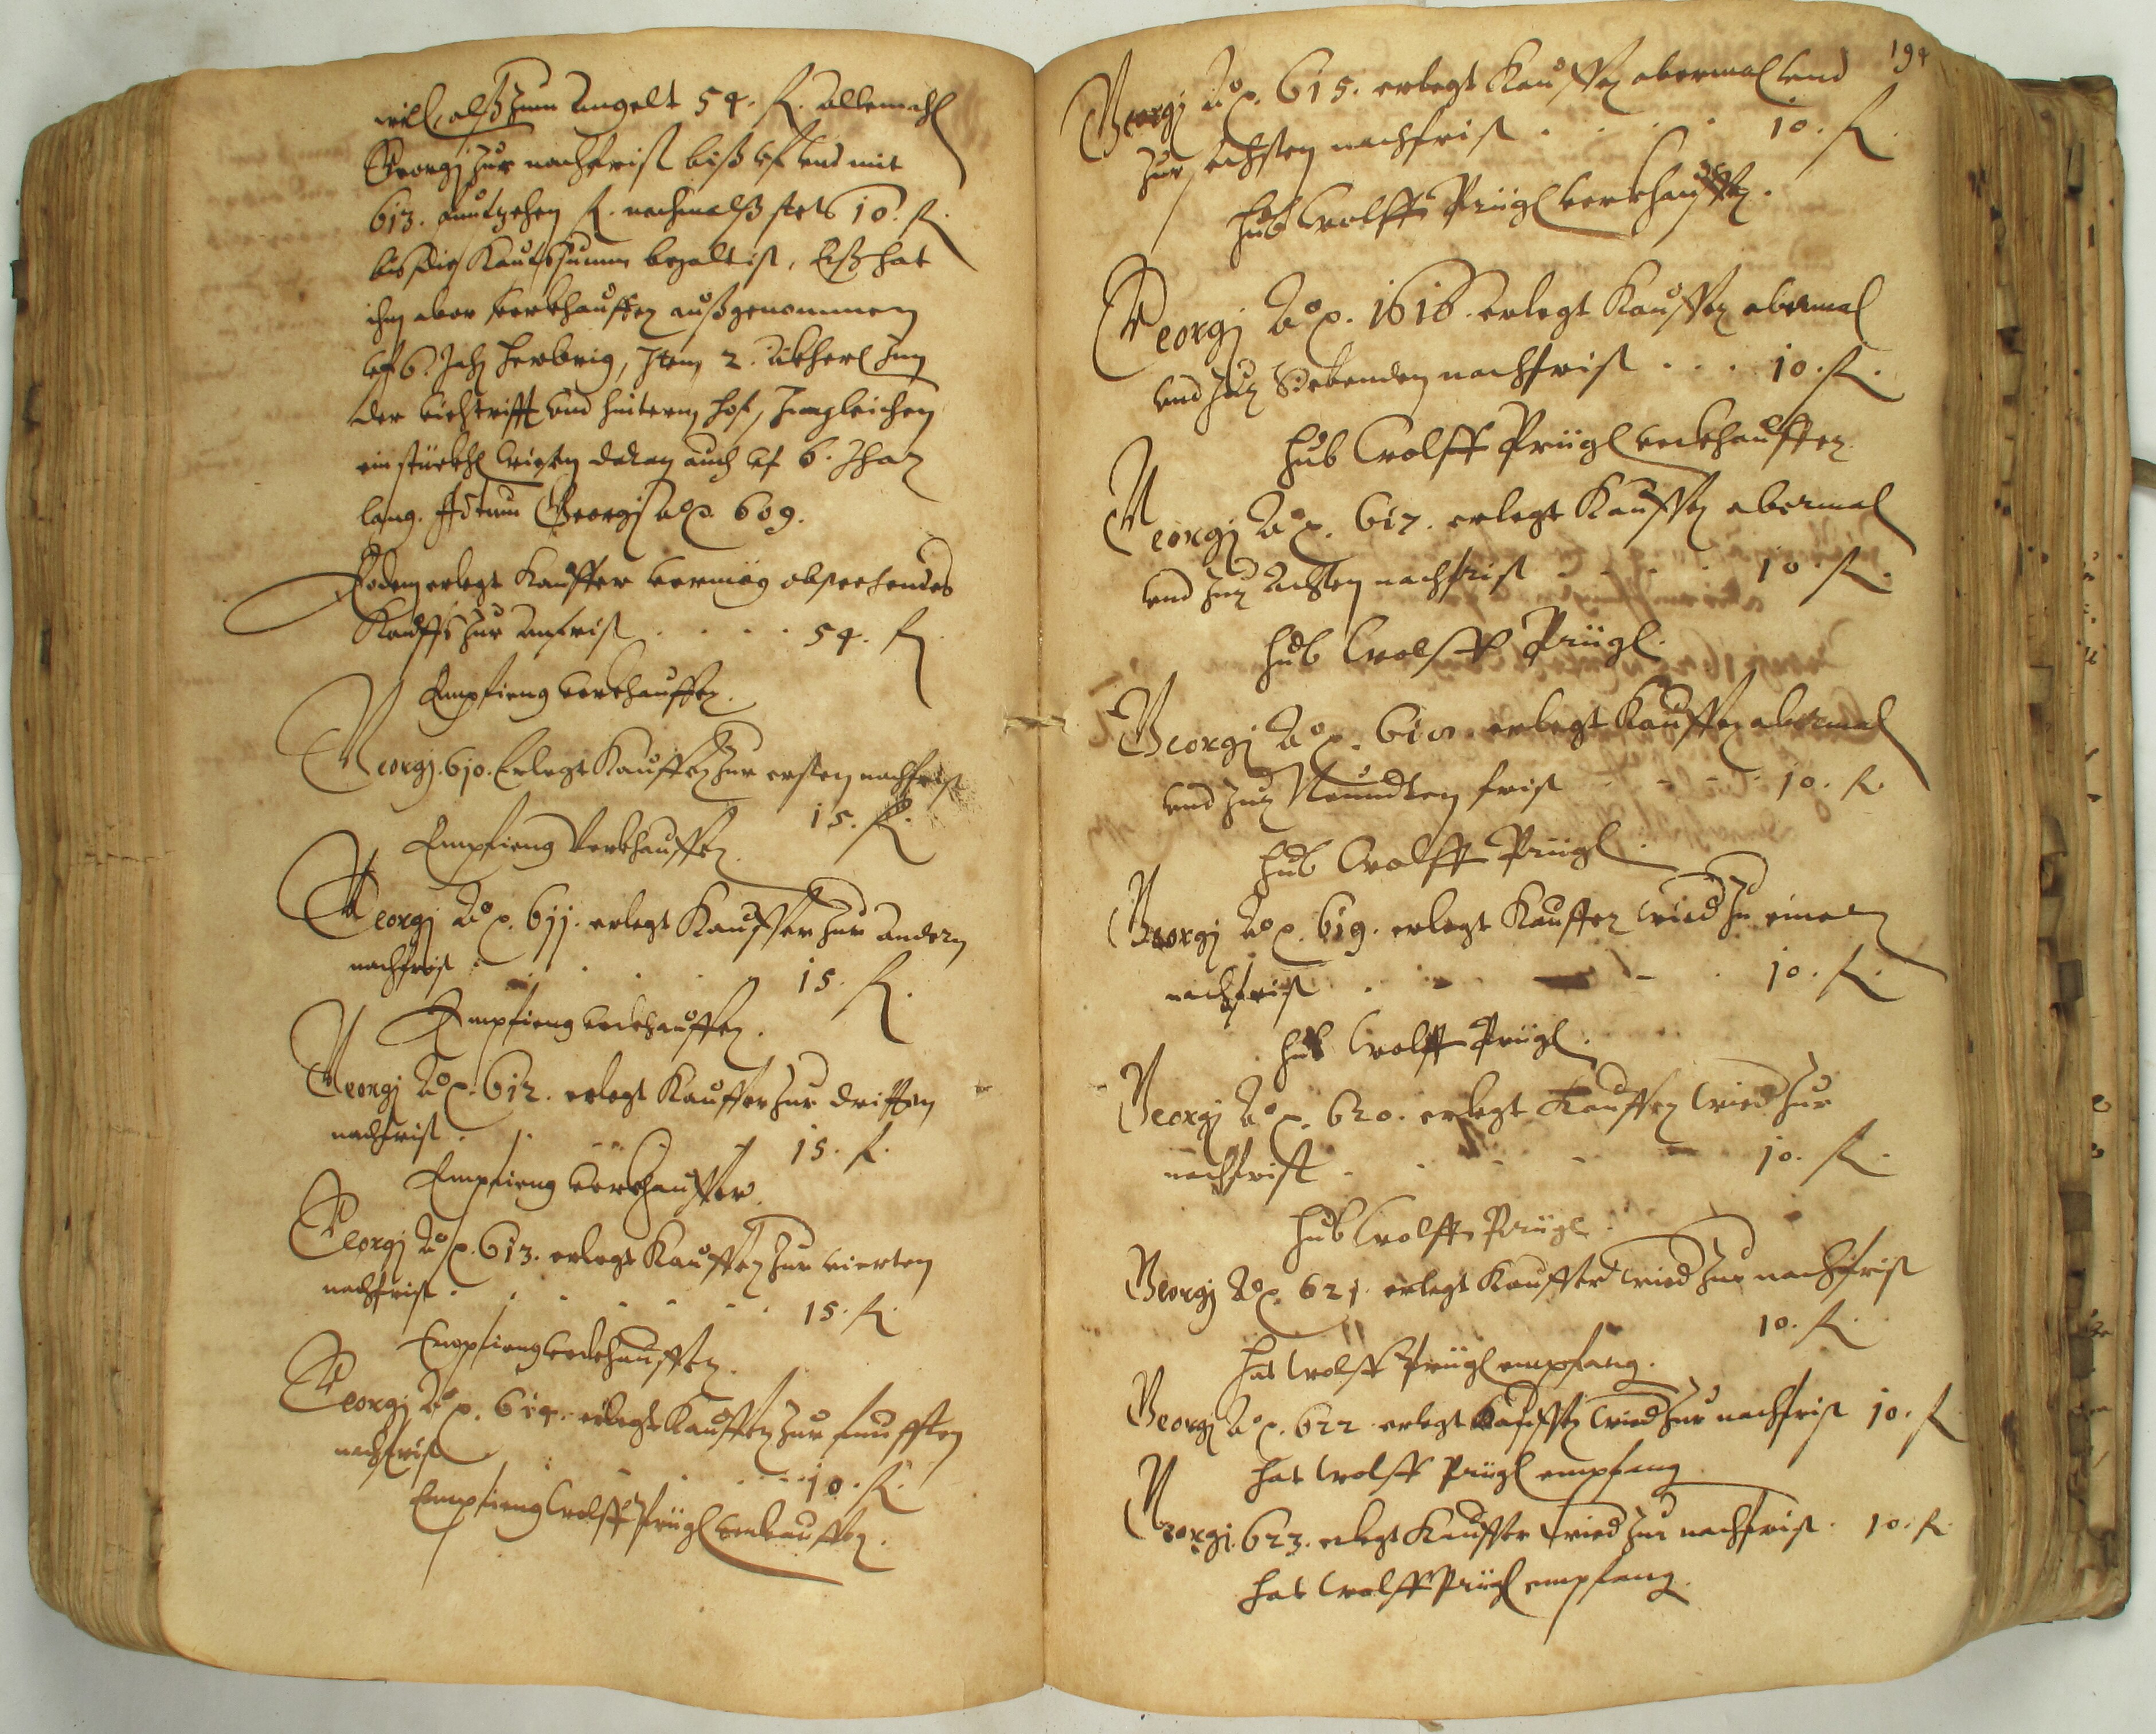 will, alß zum Angelt 54. fl. allemahl
Georgj zur nachfrist biß vf vnd mit
613. funftzehen fl. nachmalß stets 10. fl.
bis die Kaufsumm bezalt ist, Eß hat
ihm aber verkhauffer außgenommen
vf 6 Jahr herbrig, Item 2. Äckherl Inn
der viehtrifft vnd hinterm hof, Imgleichen
ein stückhl wisen daran auch vf 6. Jhar
lang. Actum Georgj aō. 609.
Eodem erlegt Kauffer vermög obstehendes
Kauffs zur Anfrist . . . . 54. fl.
Empfieng verkhauffer.
Georgj. 610. Erlegt Kauffer zur ersten nachfrist
15. fl.
Empfieng Verkhauffer.
Georgj Aō. 611. erlegt Kauffer zur andern
nachfrist . . . . 15. fl.
Empfieng verkhauffer.
Georgj Aō. 612. erlegt Kauffer zur dritten
nachfrist . . . . 15. fl.
Empfieng verkhauffer.
Georgj Aō. 613. erlegt Kauffer zur vierten
nachfrist . . . . . 15. fl.
Empfieng verkhauffer.
Georgj Aō. 614. erlegt Kauffer zur funfften
nachfrist . . . . 10. fl.
Empfieng Wolff Prügl verkauffer.
194
Georgj Aō. 615. erlegt Kauffer abermal vnd
zur sechsten nachfrist . . . . 10. fl.
hub Wolff Prügl verkhauffer.
Georgj Aō. 1616. erlegt Kauffer abermal
vnd zur Siebenden nachfrist . . . 10. fl.
hub Wolff Prügl verkhauffer
Georgj Aō. 617. erlegt Kauffer abermal
vnd zur Achten nachfrist . . . . 10. fl.
hub Wolff Prügl.
Georgj Aō. 618. erlegt Kauffer abermal
vnd zur Neundten frist - - - 10. fl.
hub Wolff Prügl.
Georgj Aō. 619. erlegt Kauffer wied zu einer
nachfrist . . . . 10. fl.
hub Wolff Prügl.
Georgj Aō. 620. erlegt Kauffer wied zur
nachfrist . . . . 10. fl.
hub Wolff Prügl.
Georgj Aō. 621. erlegt Kauffer wied zur nachfrist
10. fl.
hat Wolff Prügl empfang.
Georgj Aō. 622. erlegt Kauffer wied zur nachfrist 10. fl.
hat Wolff Prügl empfang
Georgj. 623. erlegt Kauffer wied zur nachfrist. 10. fl.
hat Wolff Prügl empfang.